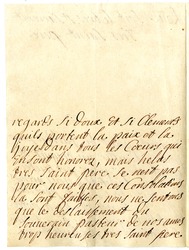 regards si doux Et si Clements
quils portent la paix et la
joye Dans tous les Coeurs qui
En sont honorez, mais helas
tres saint pere se nest pas
pour nous que ces Consolations
la sont faittes, nous ne sentons
que le delaissement du
souuerain pasteur de nos ames
trop heureuses tres saint pere